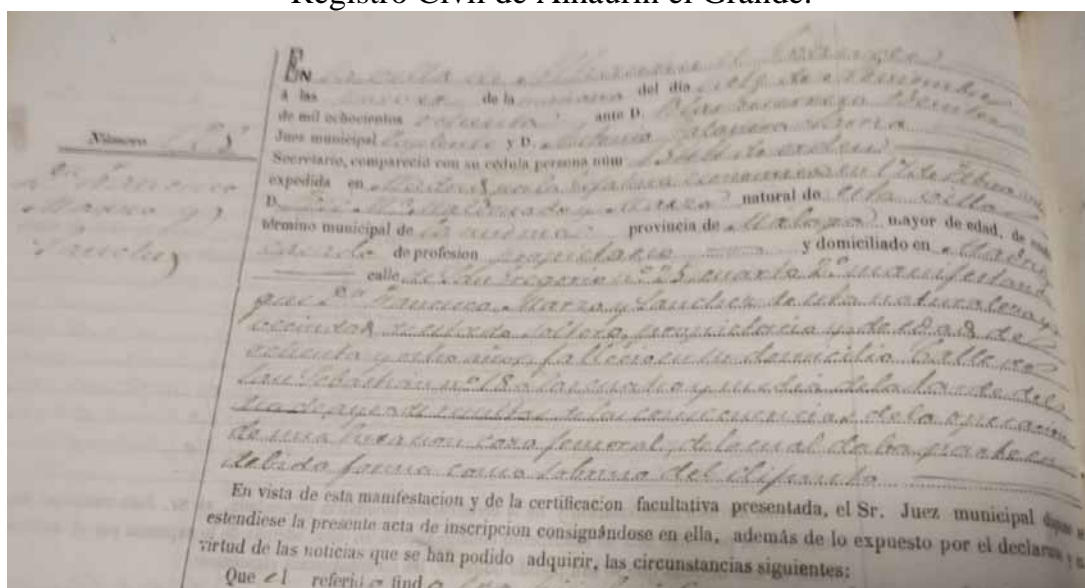 Registro Civil de Alhaurín el Grande.
EN la villa de Alhaurin el Grande
á las nueve de la mañana del dia de Noviembre
de mil ochocientos ochenta ante D.
Juez municipal suplente y D. Antonio
Secretario, compareció con su cédula persona núm
expedida en en 17 de Febrero
D. José Mª Maldonado y Marzo natural de esta villa
término municipal de la misma provincia de Malaga mayor de edad, de
de profesion propietario y domiciliado en Madrid
calle de San Gregorio nº 25 cuarto 2º manifestando
que Dn Francisco Marzo y Sanchez de esta naturaleza y
vecindad soltero, propietario y de edad de
ochenta y ocho años, falleció en su domicilio calle
San Sebastian nº 18 a las cuatro y media de la tarde del
dia de ayer de resultas de las consecuencias de la operacion
de una coxo femoral, de lo cual daba parte en
debida forma como sobrino del difunto
Número
Dn Francisco
Marzo y
Sanchez
En vista de esta manifestacion y de la certificacion facultativa presentada, el Sr. Juez municipal
estendiese la presente acta de inscripcion consignándose en ella, además de lo expuesto por el
virtud de las noticias que se han podido adquirir, las circunstancias siguientes:
Que el referido find